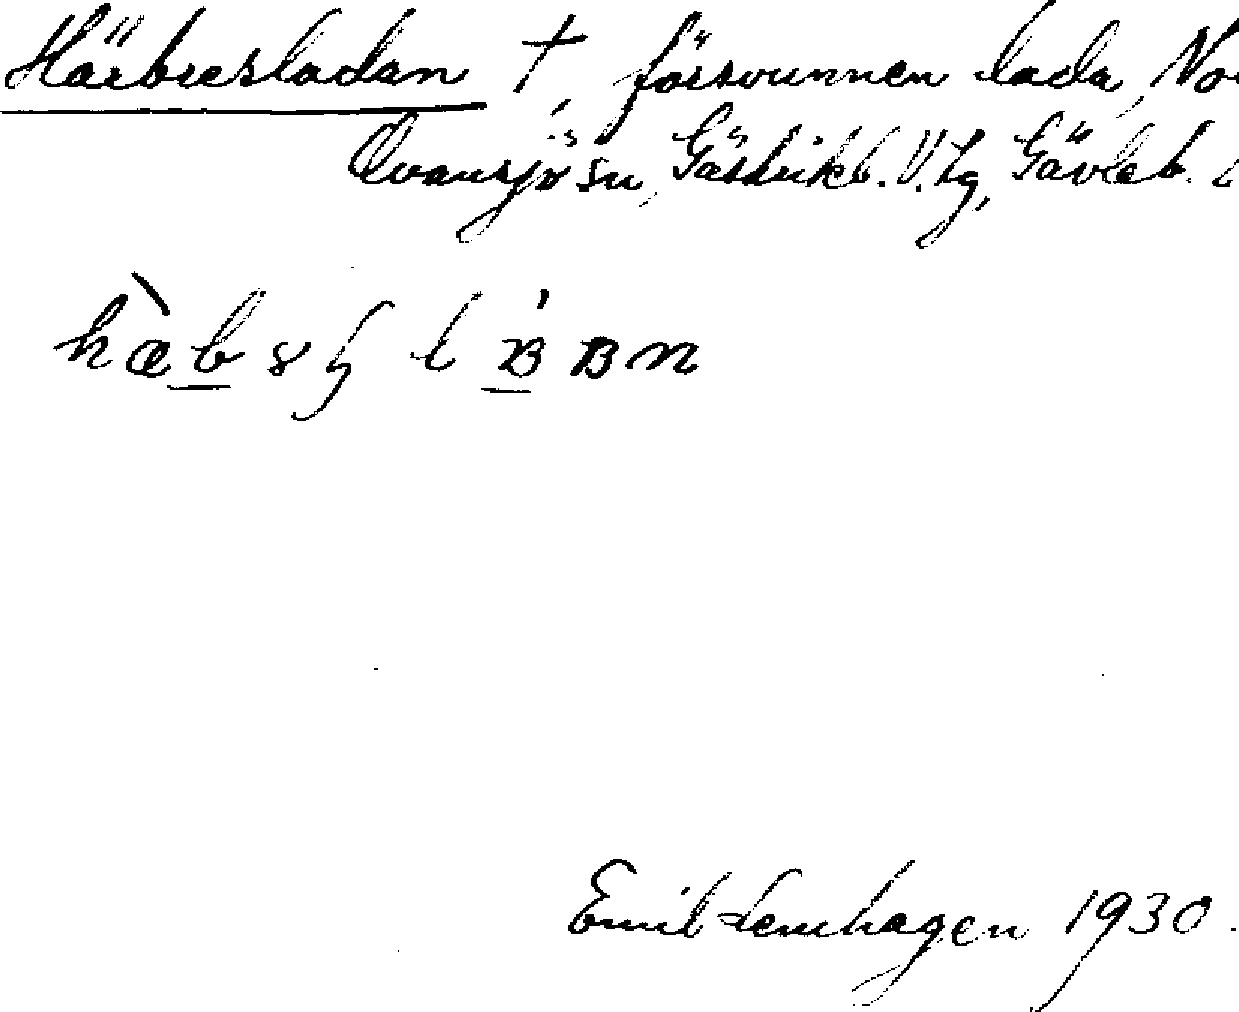 Härbresladan †, försvunnen lada, No
Ovansjö sn, Gästrikl. V. tg, Gävleb. L
Emil Lenhagen 1930.